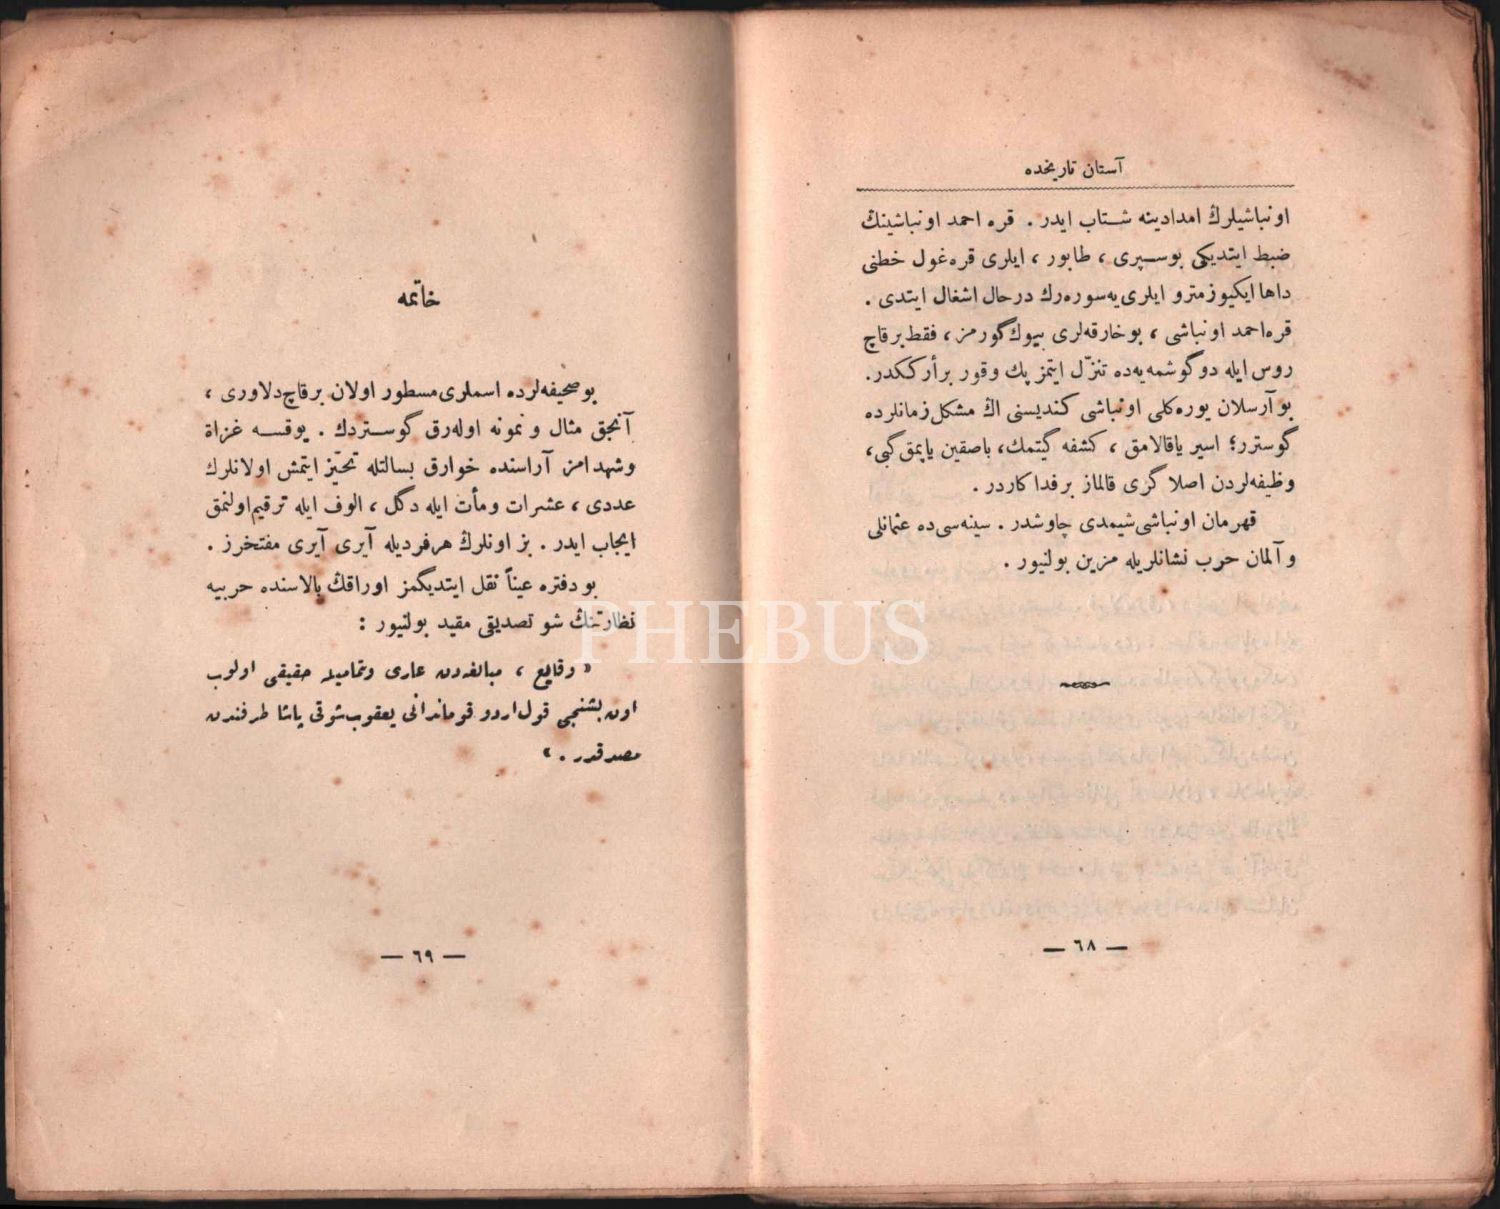 آستان تاریخده
اونباشیلرڭ امدادینه شتاب ایدر . قره احمد اونباشینڭ
ضبط ایتدیکی بوسپری ، طابور ، ایلری قره‌غول خطنی
داها ایکیوز مترو ایلری‌یه سوره‌رك درحال اشغال ایتدی .
قره‌احمد اونباشی ، بوخارقه‌لری بیوك گورمز ، فقط برقاچ
روس ایله دوگوشمه‌یه‌ده تنزّل ایتمز پك وقور برأرککدر.
بو آرسلان یوره‌کلی اونباشی کندیسنی اڭ مشکل زمانلرده
گوسترر؛ اسیر یاقالامق ، کشفه گیتمك، باصقین یاپمق گبی،
وظیفه‌لردن اصلا گری قالماز برفداکاردر .
قهرمان اونباشی شیمدی چاوشدر . سینه‌سی‌ده عثمانلی
و آلمان حرب نشانلریله مزین بولنیور .
— ٦٨ —
خاتمه
بو صحیفه‌لرده اسملری مسطور اولان برقاچ دلاوری ،
آنجق مثال و نمونه اوله‌رق گوستردك . یوقسه غزاة
وشهدامز آراسنده خوارق بسالتله تحیّز ایتمش اولانلرك
عددی ، عشرات ومأت ایله دگل ، الوف ایله ترقیم اولنمق
ایجاب ایدر . بز اونلرڭ هرفردیله آیری آیری مفتخرز .
بو دفتره عیناً نقل ایتدیگمز اوراقڭ بالاسنده حربیه
نظارتنڭ شو تصدیقی مقید بولنیور :
« وقایع ، مبالغه‌دن عاری و تمامیله حقیقی اولوب
اون بشنجی قول اردو قوماندانی یعقوب شوقی پاشا طرفندن
مصدقدر . »
— ٦٩ —
PHEBUS